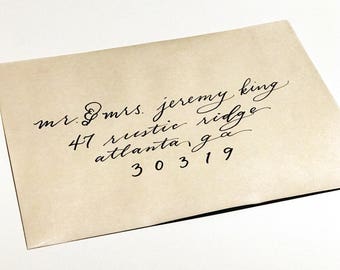 mr. & mrs. jeremy king
47 rustic ridge
atlanta, ga
30319